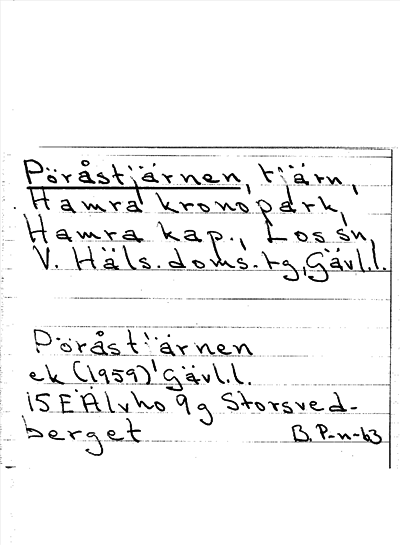 Pöråstjärnen, tjärn,
Hamra kronopark,
Hamra kap., Los sn,
V. Häls. doms. tg, Gävl.l.
Pöråstjärnen
ek (1959) Gävl.l.
15E Älvho 9g Storsved-
berget B. P-n-63